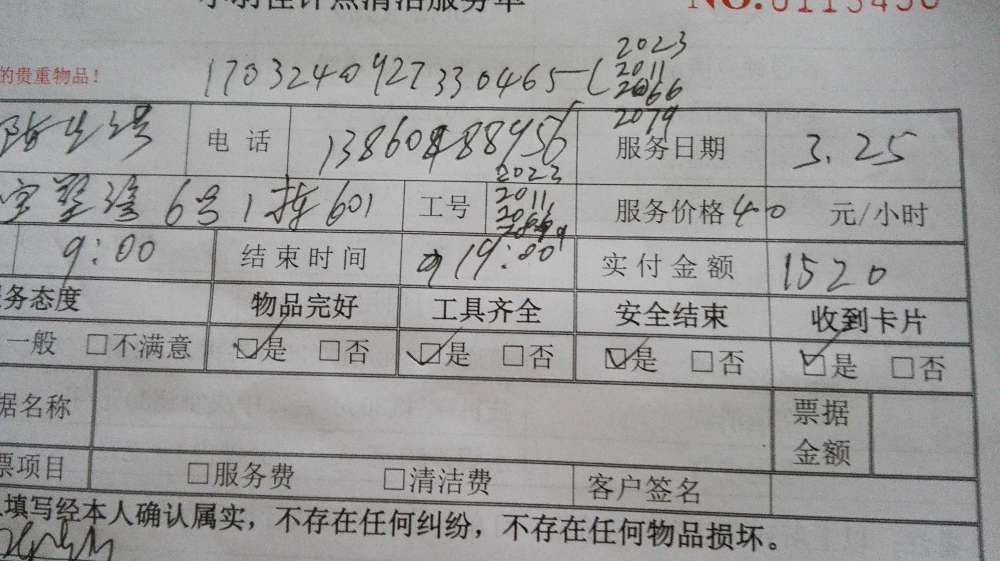 计点清洁服务单 NO.0113430
的贵重物品！
1703240927330465-(
2023
2011
2066
2079
电话 服务日期 3.25
6号1栋601 工号 2023 2011 服务价格40 元/小时
9:00 结束时间 19:00 实付金额 1520
务态度 物品完好 工具齐全 安全结束 收到卡片
一般 □不满意 ☑是 □否 ☑是 □否 ☑是 □否 ☑是 □否
据名称 票据金额
票项目 □服务费 □清洁费 客户签名
填写经本人确认属实，不存在任何纠纷，不存在任何物品损坏。